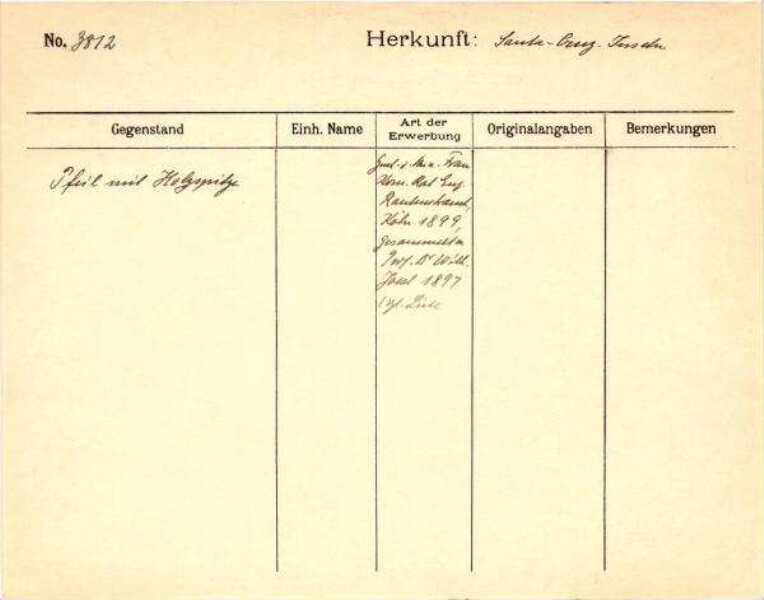 No. 3812 Herkunft: Santa-Cruz-Inseln
Gegenstand Einh. Name Art der Erwerbung Originalangaben Bemerkungen
Pfeil mit Holzspitze
Frau
Kom. Rat Eug.
Rautenstrauch,
Köln 1899,
gesammelt v.
Prof. Dr Wilh.
Joest 1897